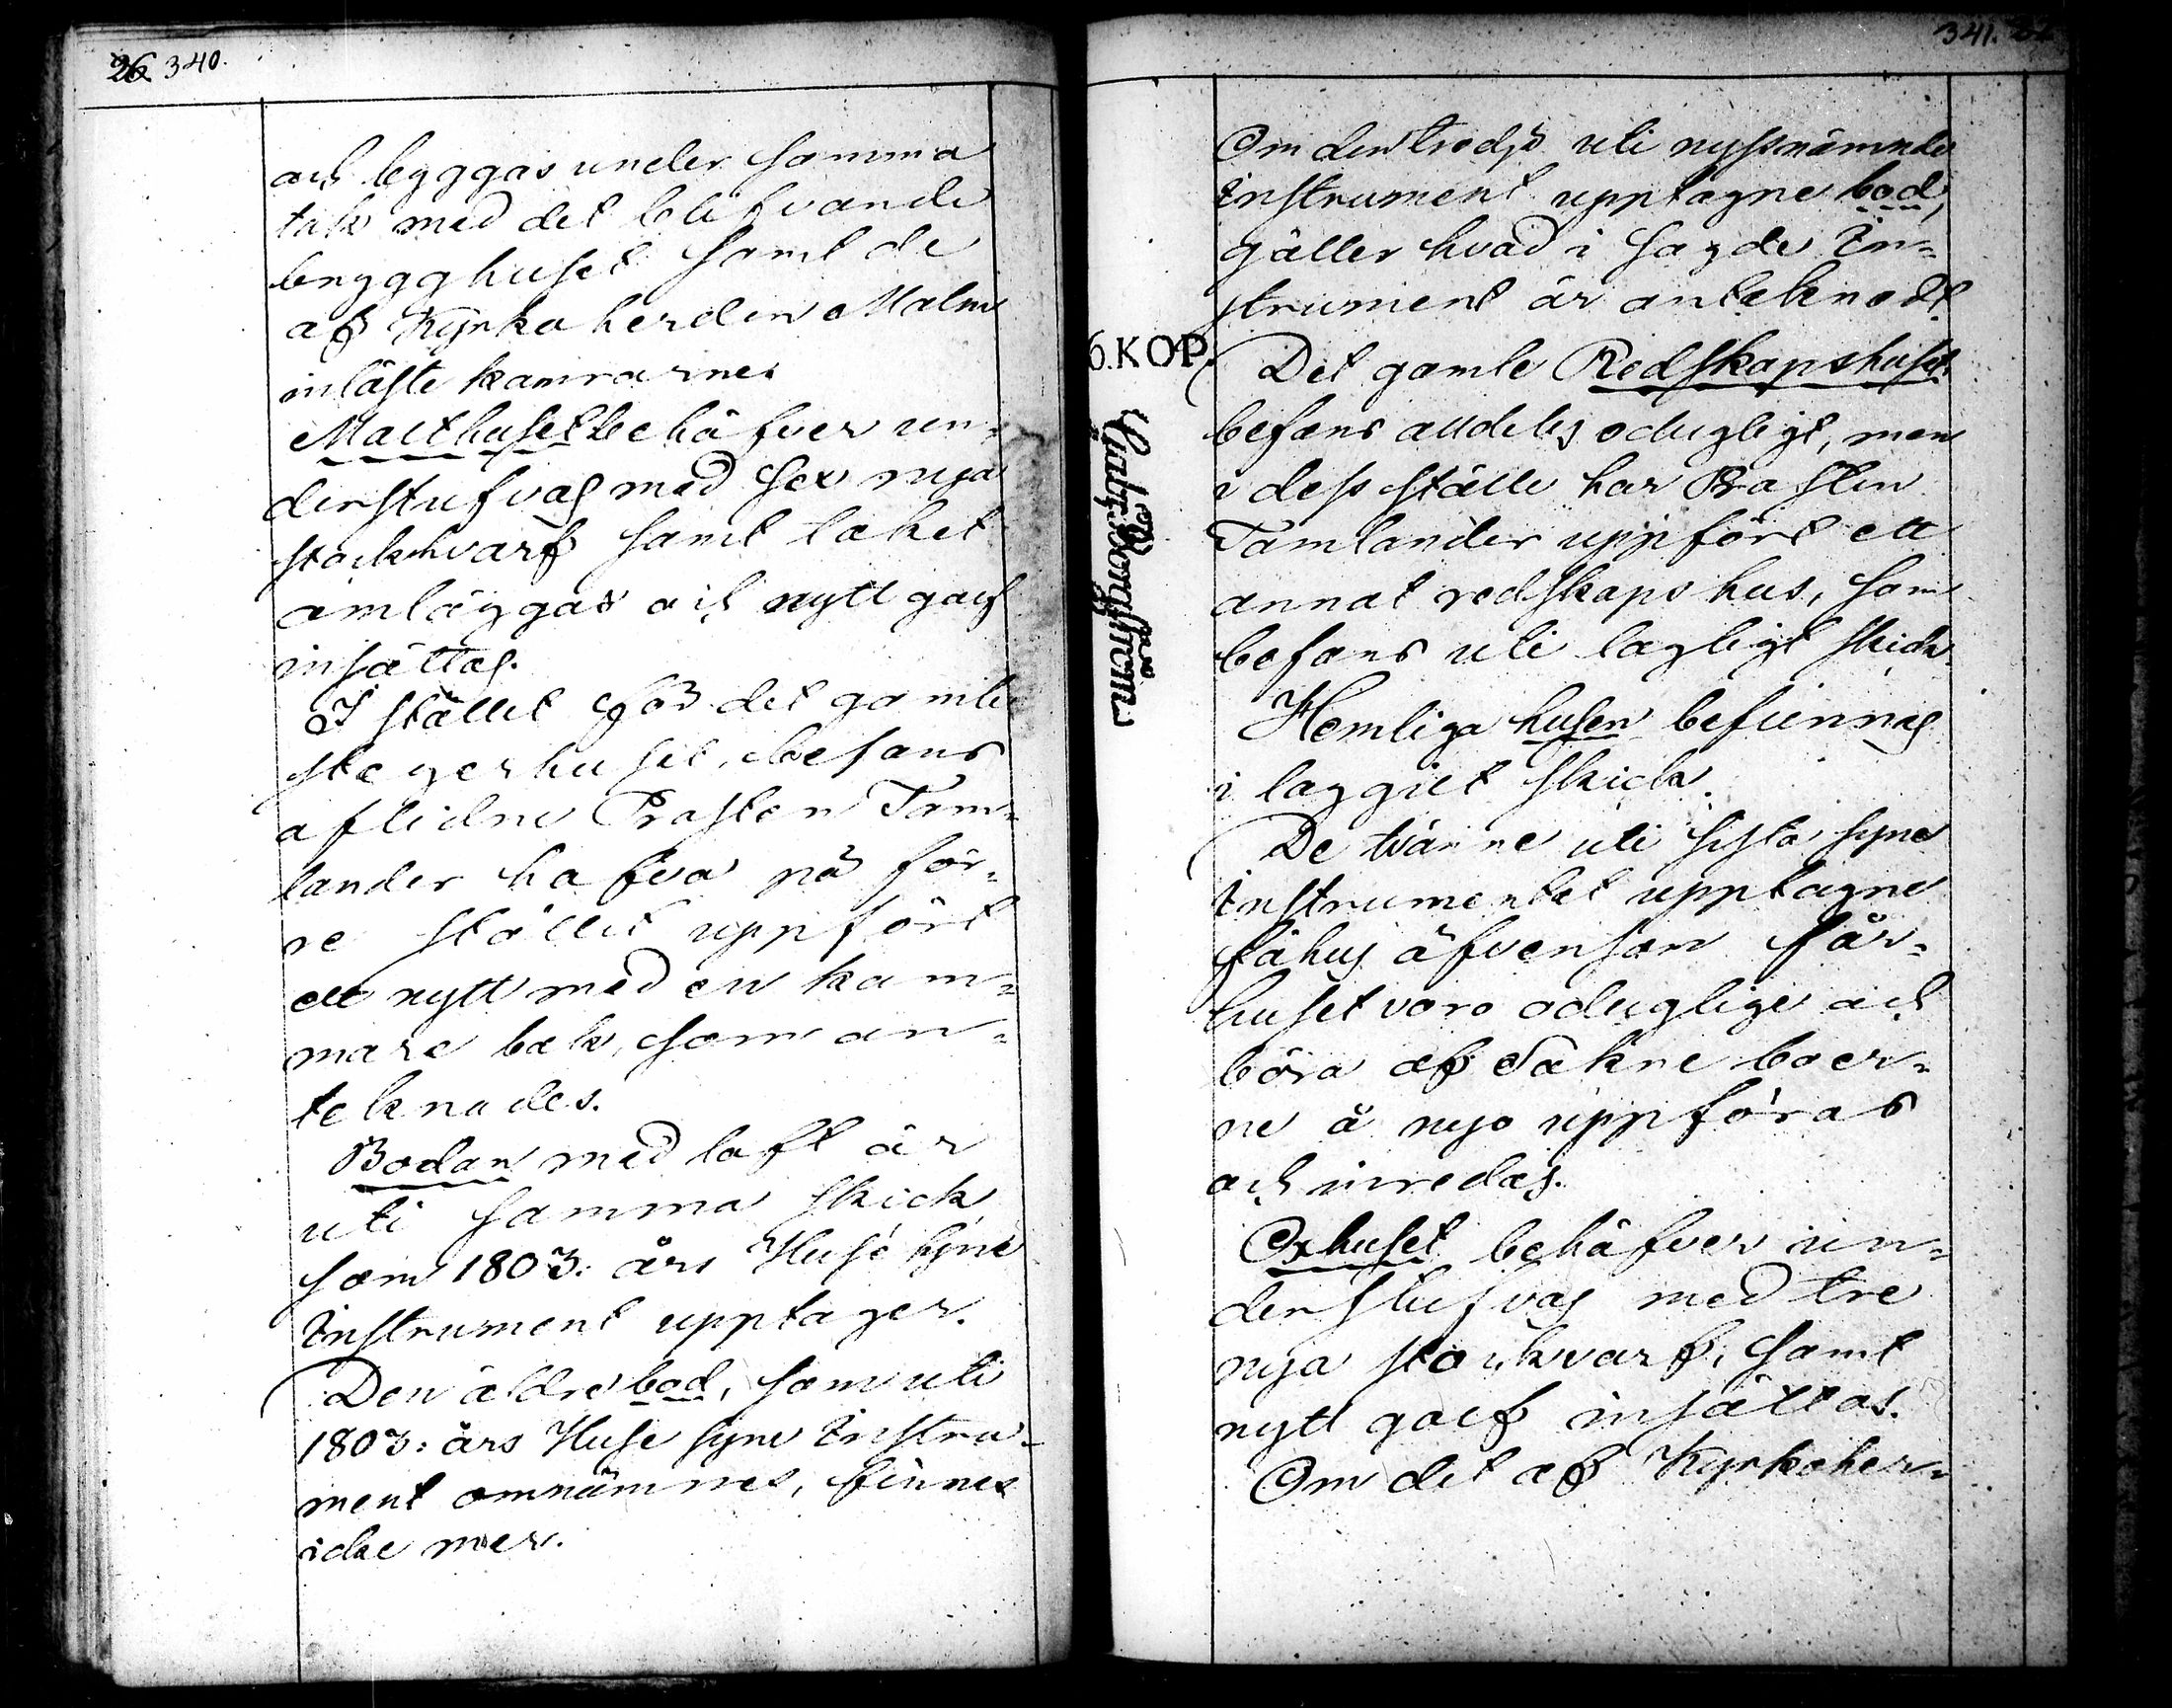 26 340.
och byggas under samma
tak med det blifvande
brygghuset samt de
af Kyrko herden Malm
inlöste kamrarne.
Malthuset behöfver un-
derstufvas med sex nya
stockhvarf samt taket
omläggas och nytt golf
insättas.
I stället för det gamla
stegerhuset, befans
aflidne Prosten Tam-
lander hafva på för-
re stället uppfört
ett nytt med en kam-
mare bak, som an-
teknades.
Bodan med loft är
uti samma skick
som 1803: års Huse syne
Instrument upptager.
Den äldre bod, som uti
1803: års Huse syne Instru-
ment omnämnes, finnes
icke mer.
341.
Om den tredje uti nyssnämnde
Instrument upptagne bod,
gäller hvad i sagde In-
strument är anteknadt.
6. KOP.
Det gamle Redskapshuset
befans alldeles odugligt, men
i dess ställe har Prosten
Tamlander uppfört ett
annat redskaps hus, som
befans uti lagligt skick.
Hemliga husen befunnos
i laggilt skick.
De tvänne uti sista syne
Instrumentet upptagne
fähus äfvensom får-
huset voro oduglige och
böra af Sokne boer-
ne å nyo uppföras
och inredas.
Oxhuset behöfver un-
derstufvas med tre
nya stockvarf, samt
nytt golf insättas.
Om det af Kyrkoher-